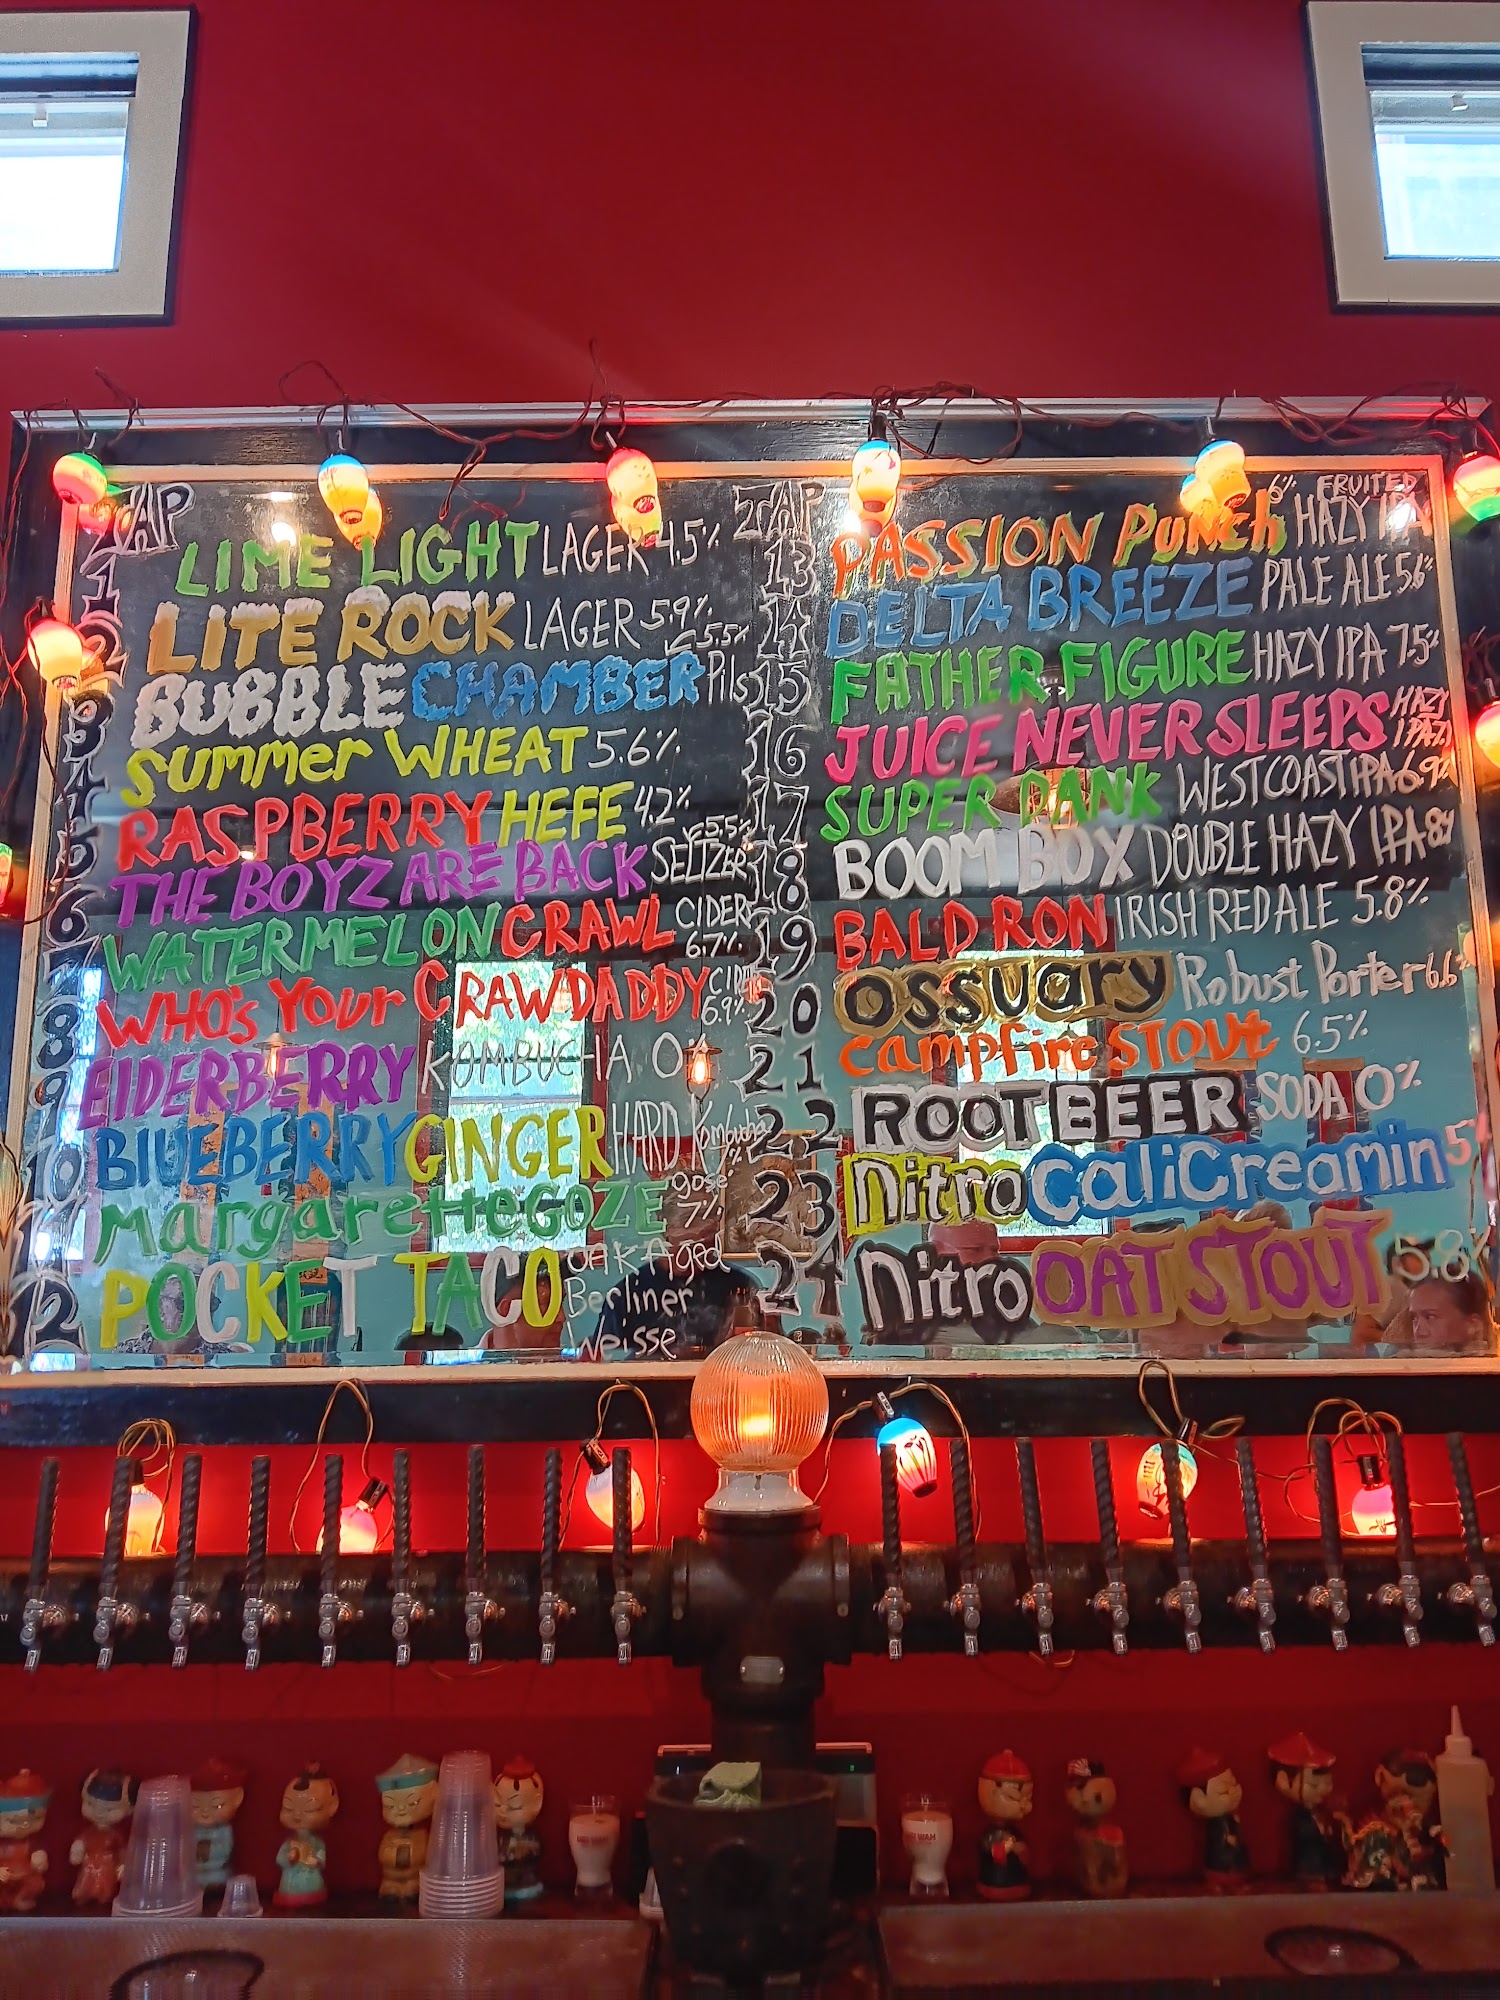 TAP
1 LIME LIGHT LAGER 4.5%
2 LITE ROCK LAGER 5.9%
3 BUBBLE CHAMBER Pils 5.5%
4 Summer WHEAT 5.6%
5 RASPBERRY HEFE 4.2%
6 THE BOYZ ARE BACK SELTZER 5.5%
7 WATERMELON CRAWL CIDER 6.7%
8 WHO's Your CRAWDADDY CIDER 6.9%
9 ElDERBERRY KOMBUCHA 0%
10 BlUEBERRY GINGER HARD Kombucha 7%
MargaretteGOZE gose 7%
12 POCKET TACO OAK Aged
Berliner
Weisse
TAP
13 PASSION PUNCh 6% FRUITED HAZY IPA
14 DELTA BREEZE PALE ALE 5.6%
15 FATHER FIGURE HAZY IPA 7.5%
16 JUICE NEVER SLEEPS HAZY IPA 7%
17 SUPER DANK WEST COAST IPA 6.9%
18 BOOM BOX DOUBLE HAZY IPA 8%
19 BALD RON IRISH RED ALE 5.8%
20 OSSUary Robust Porter 6.6%
21 Campfire STOUt 6.5%
22 ROOT BEER SODA 0%
23 Nitro CaliCreamin 5%
24 Nitro OAT STOUT 5.8%